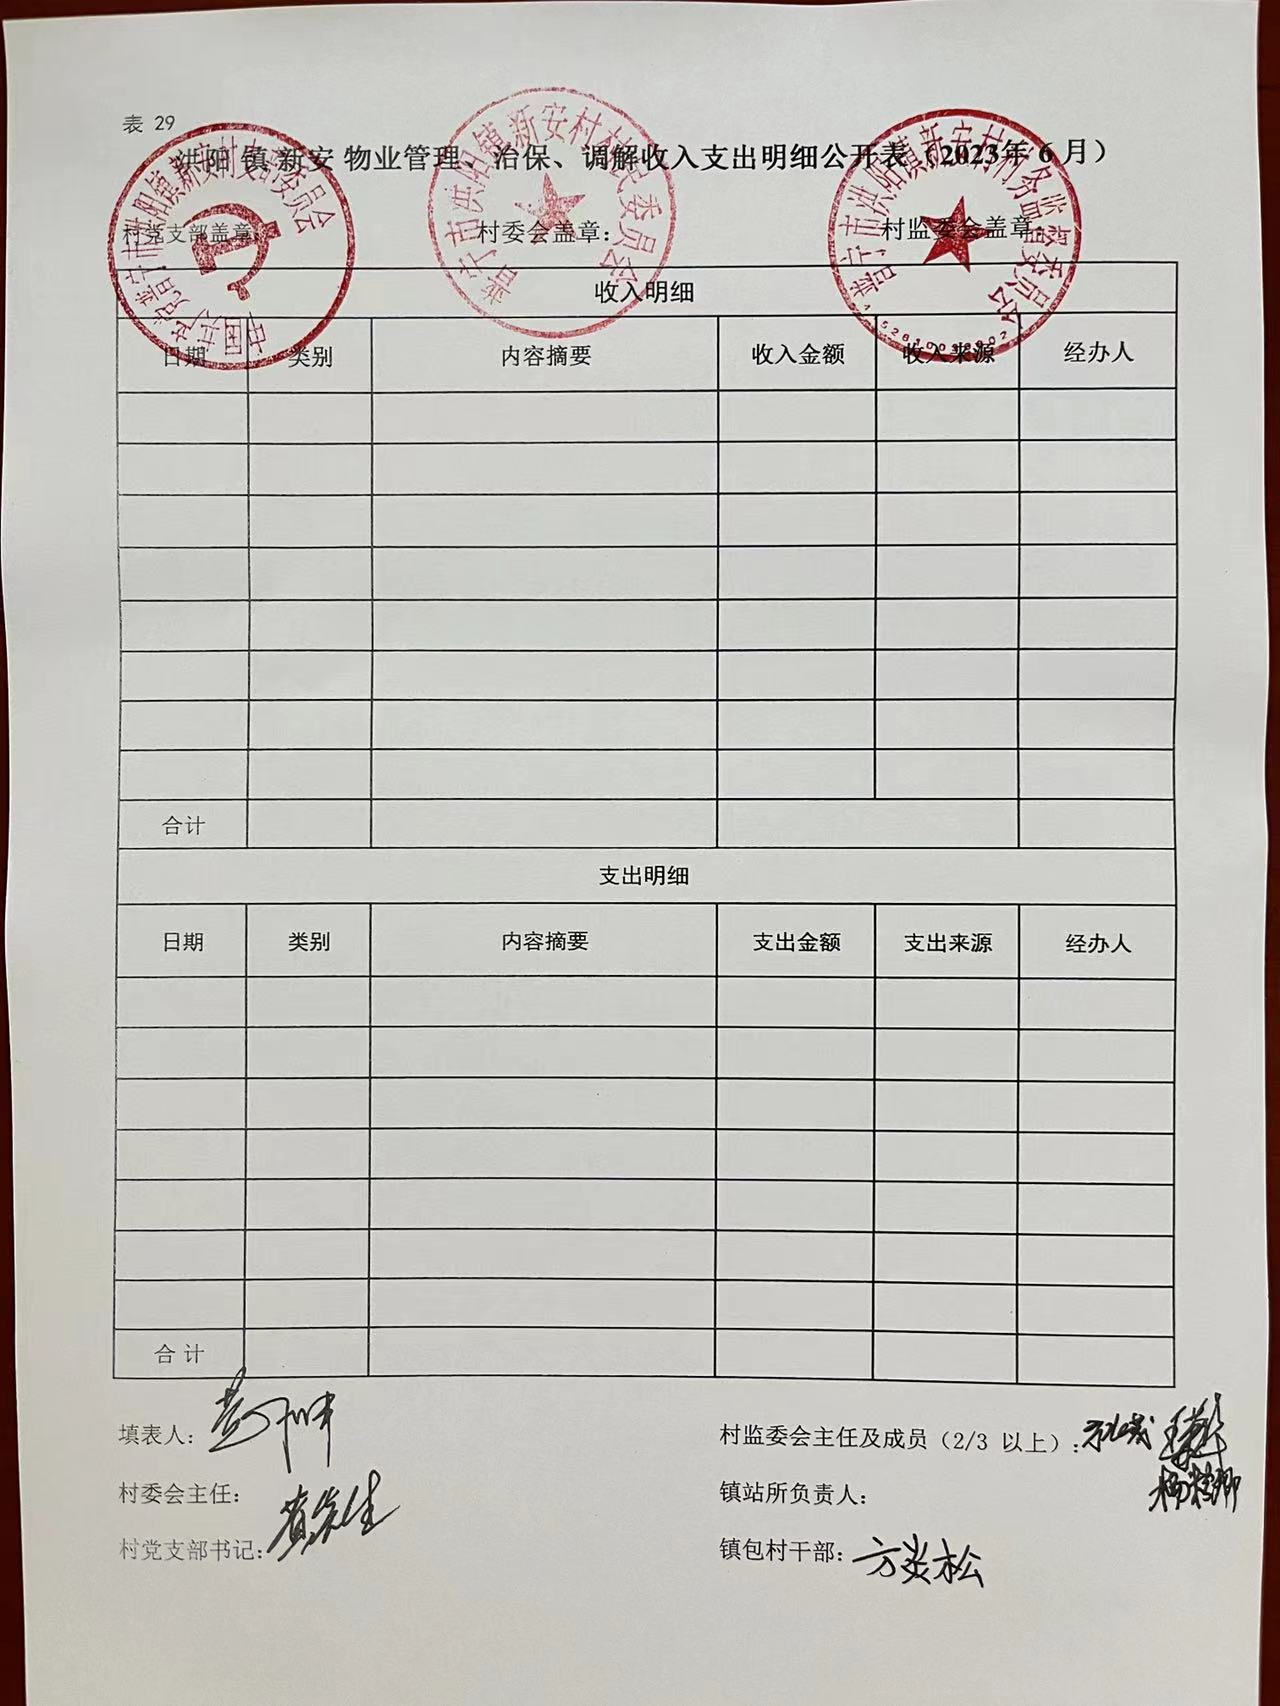 表 29
洪阳 镇 新安 物业管理、治保、调解收入支出明细公开表（2023年 6 月）
村党支部盖章: 村委会盖章: 村监委会盖章:
中国共产党普宁市洪阳镇新安村支部委员会
普宁市洪阳镇新安村村民委员会
普宁市洪阳镇新安村村务监督委员会
收入明细
日期 类别 内容摘要 收入金额 收入来源 经办人
合计
支出明细
日期 类别 内容摘要 支出金额 支出来源 经办人
合 计
填表人: 村监委会主任及成员（2/3 以上）:
村委会主任: 镇站所负责人:
村党支部书记: 镇包村干部: 方炎松